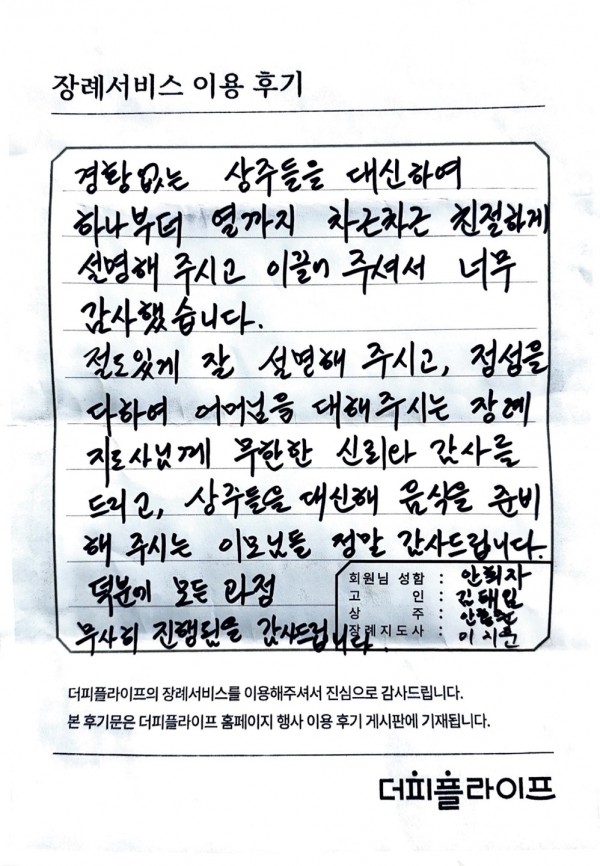 장례서비스 이용 후기
경황없는 상주들을 대신하여
하나부터 열까지 차근차근 친절하게
설명해 주시고 이끌어 주셔서 너무
감사했습니다.
절도있게 잘 설명해 주시고, 정성을
다하여 어머님을 대해주시는 장례
지도사님께 무한한 신뢰와 감사를
드리고, 상주들을 대신해 음식을 준비
해 주시는 이모님들 정말 감사드립니다.
덕분에 모든 과정
무사히 진행됨을 감사드립니다.
회원님 성함 : 안희자
고 인 : 김태임
상 주 :
장례지도사 : 이시준
더피플라이프의 장례서비스를 이용해주셔서 진심으로 감사드립니다.
본 후기문은 더피플라이프 홈페이지 행사 이용 후기 게시판에 기재됩니다.
더피플라이프